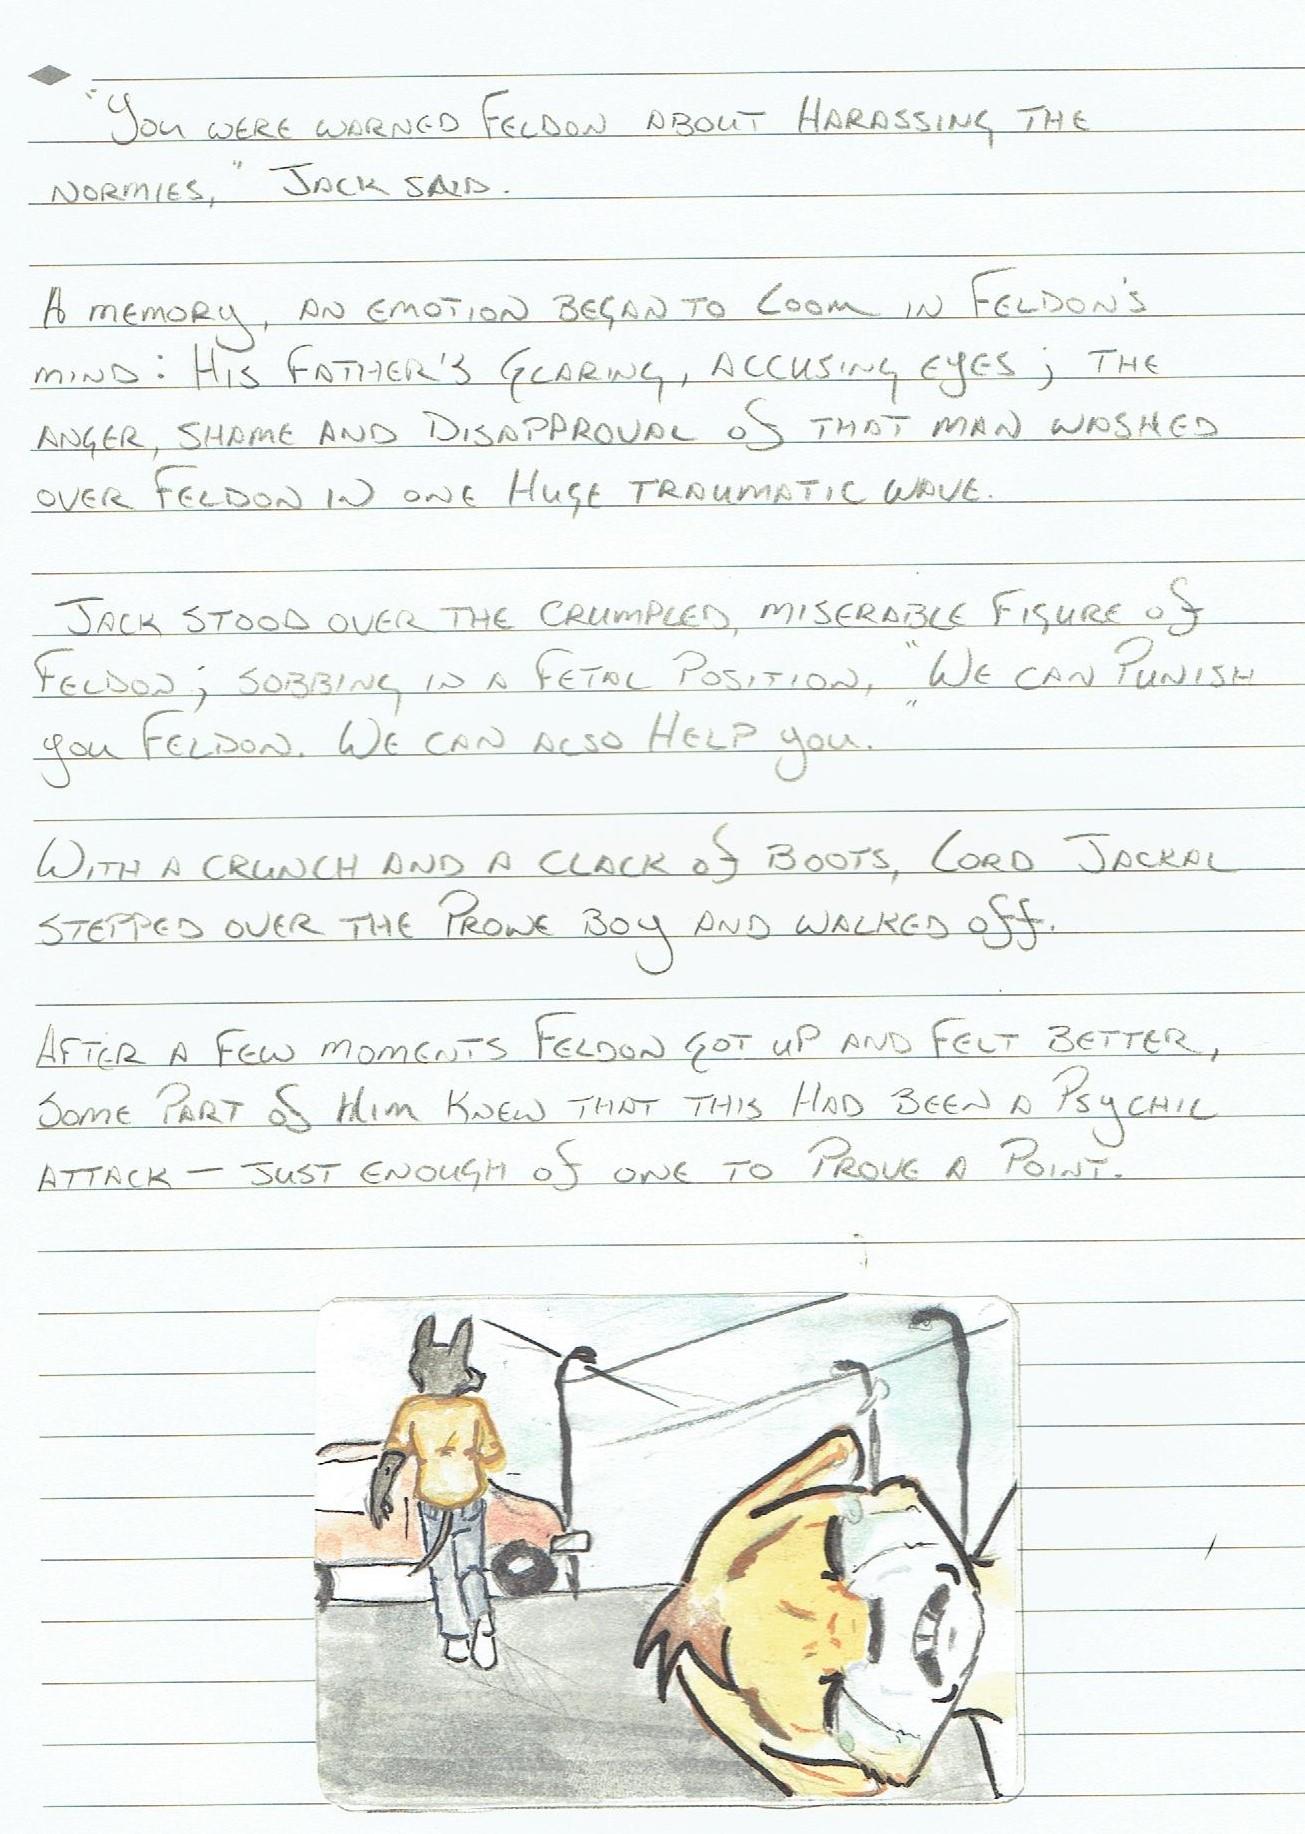 "You were warned Feldon about harassing the
normies," Jack said.
A memory, an emotion began to loom in Feldon's
mind: His Father's glaring, accusing eyes; the
anger, shame and disapproval of that man washed
over Feldon in one huge traumatic wave.
Jack stood over the crumpled, miserable figure of
Feldon; sobbing in a fetal position, "We can punish
you Feldon. We can also help you."
With a crunch and a clack of boots, Lord Jackal
stepped over the prone boy and walked off.
After a few moments Feldon got up and felt better,
some part of him knew that this had been a psychic
attack — just enough of one to prove a point.